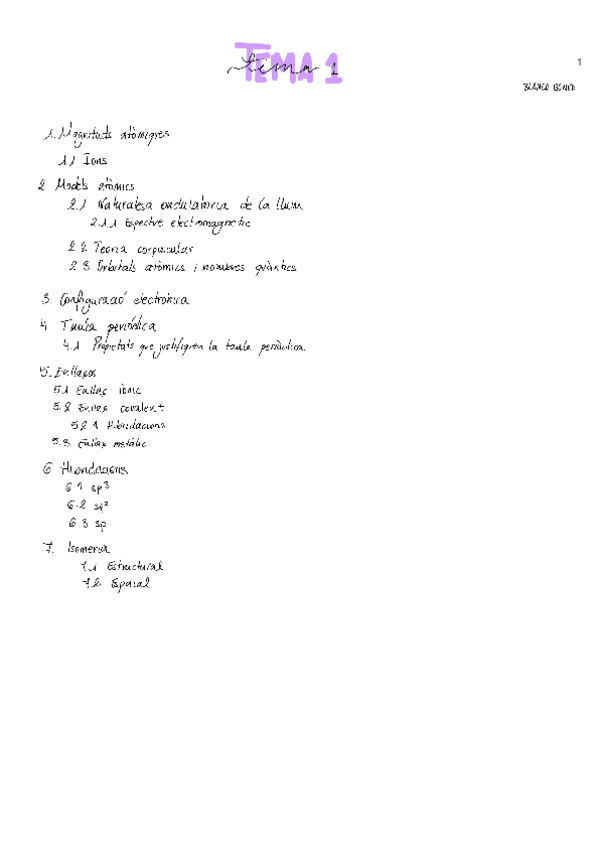 TEMA 1
tema 1
1
1. Magnituds atòmiques
1.1 Ions
2 Models atòmics
2.1 Naturalesa ondulatòria de la llum
2.1.1 Espectre electromagnètic
2.2 Teoria corpuscular
2.3 Orbitals atòmics i nombres quàntics
3. Configuració electrònica
4 Taula periòdica
4.1 Propietats que justifiquen la taula periòdica.
5. Enllaços
5.1 Enllaç iònic
5.2 Enllaç covalent
5.2.1 Hibridacions
5.3 Enllaç metàl·lic
6 Hibridacions
6.1 sp³
6.2 sp²
6.3 sp
7. Isomeria
7.1 Estructural
7.2 Espacial